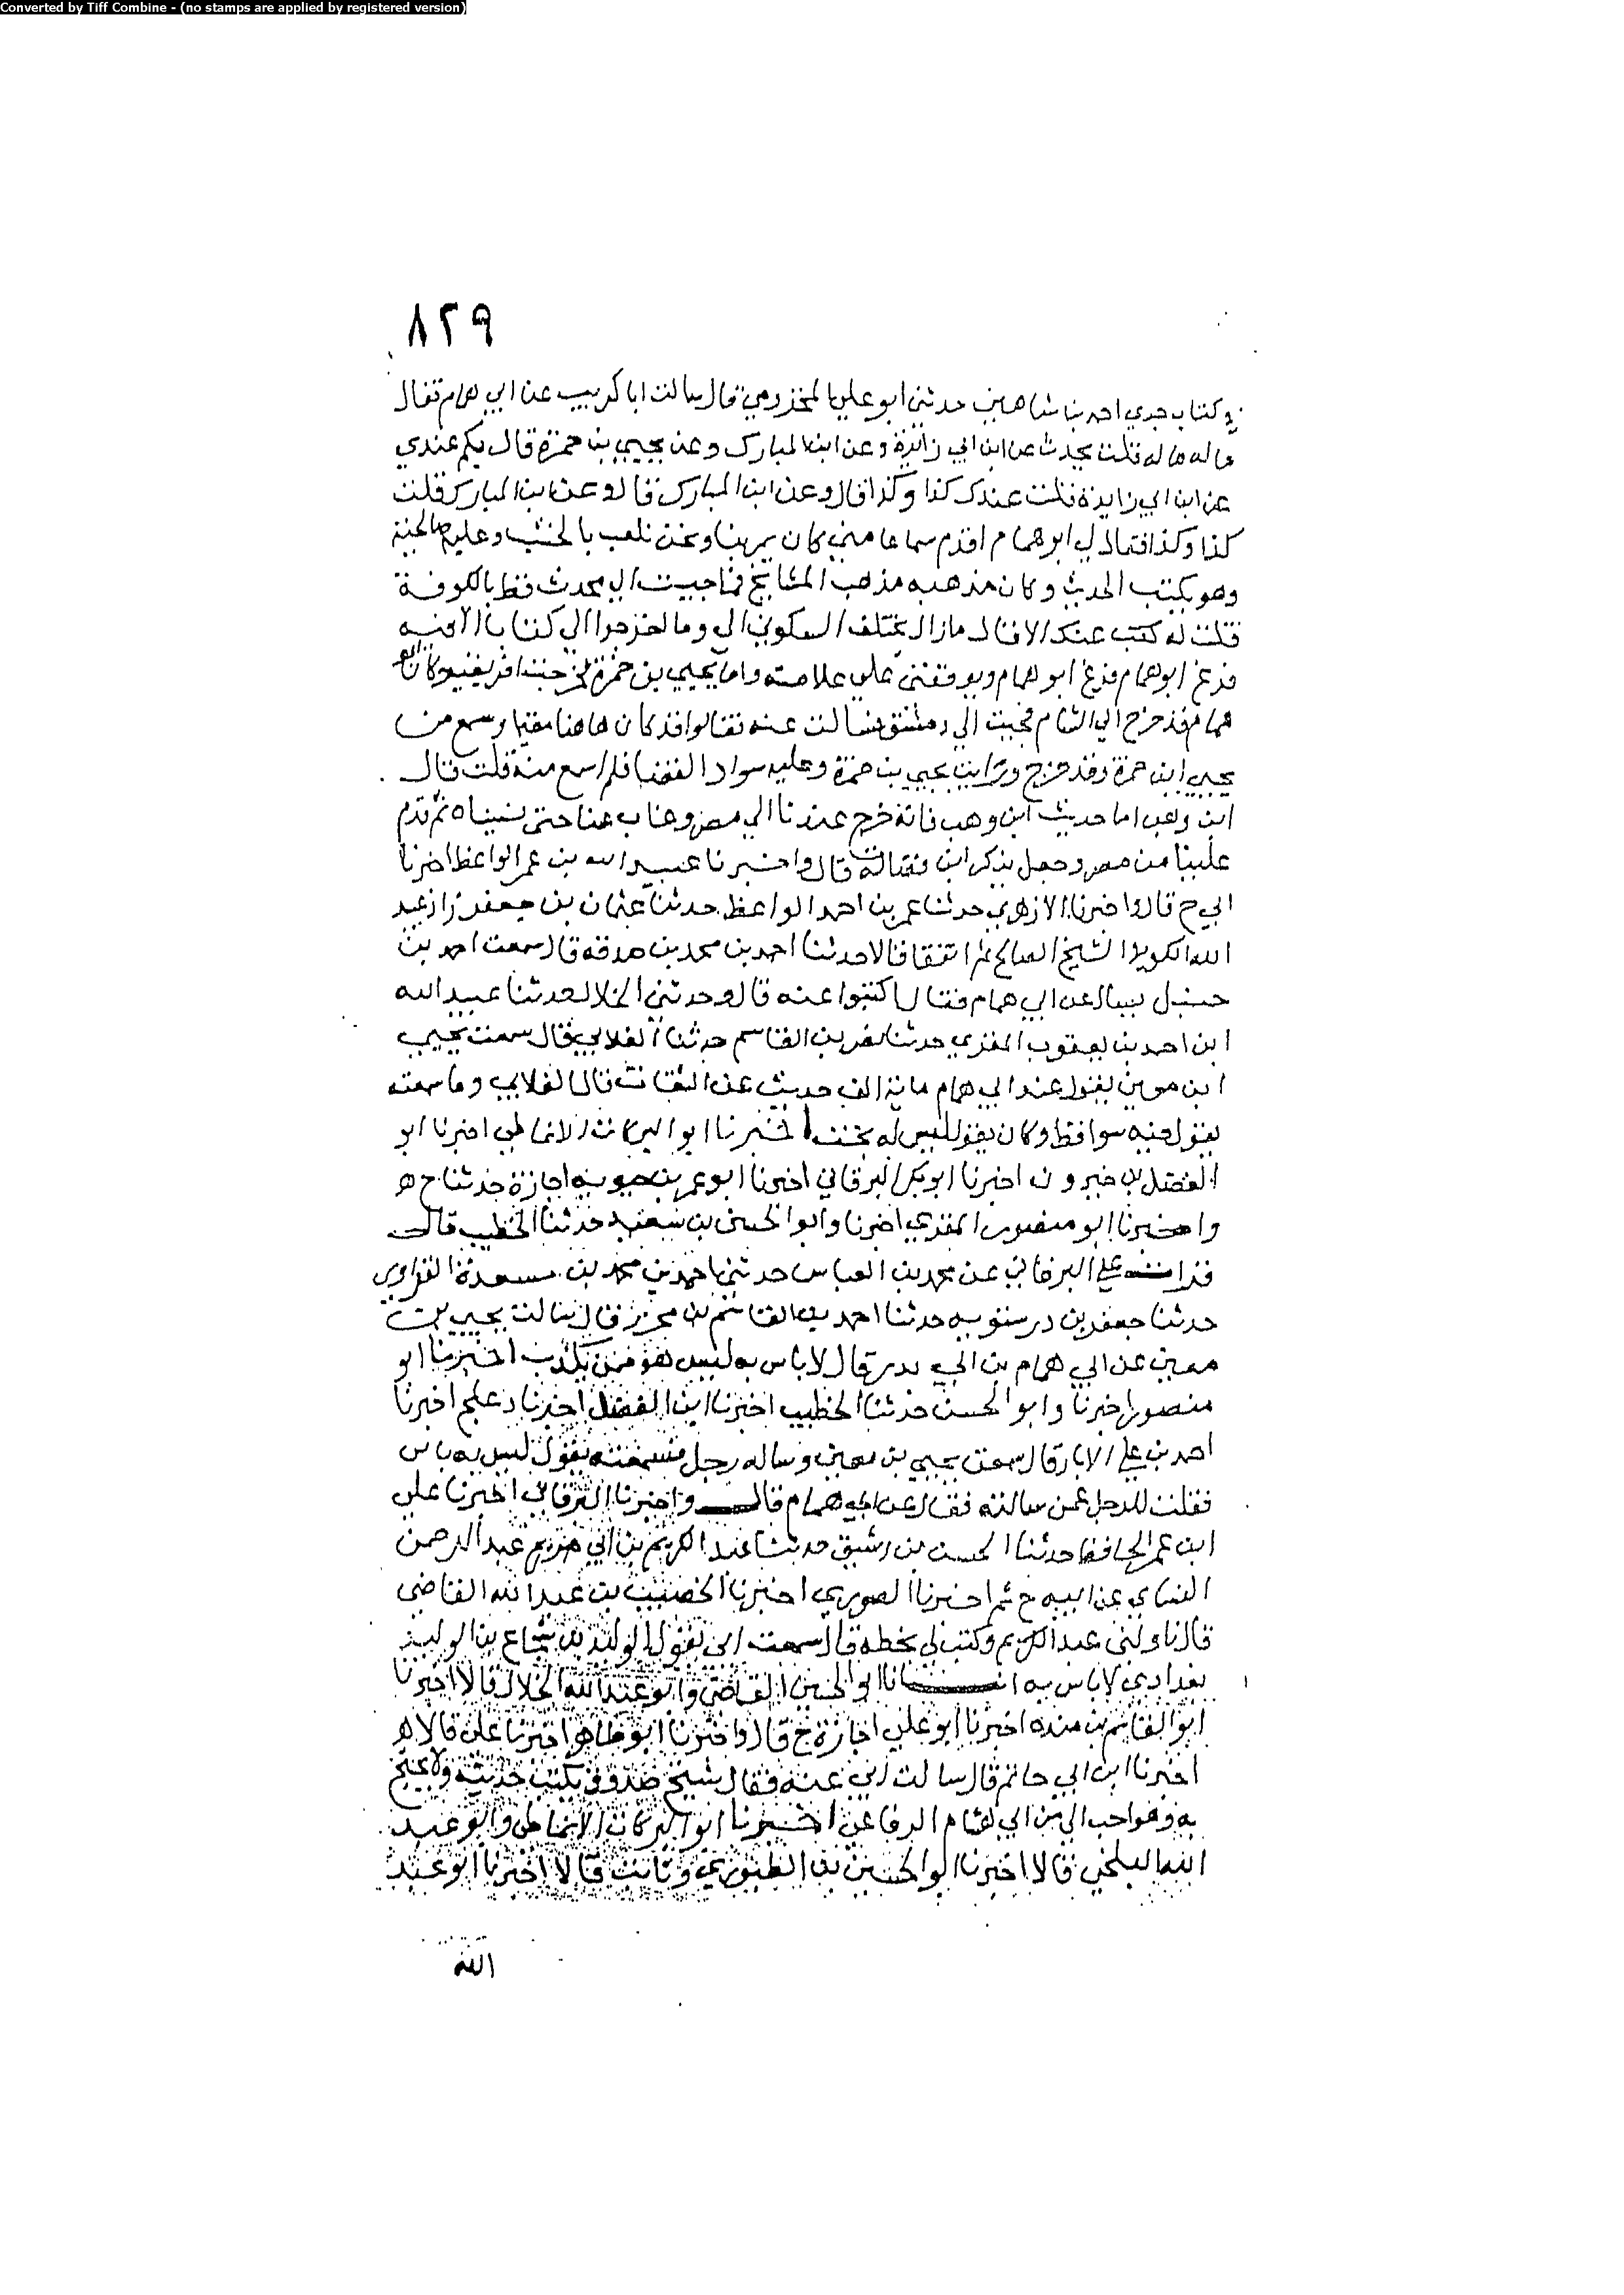 Converted by Tiff Combine - (no stamps are applied by registered version)
٨٢٩
في كتاب جدي احمد بن شاهين حدثني ابو علي المخزومي قال سالت ابا كريب عن ابي همام فقال
ما له ما له قلت يحدث عن ابن ابي زائدة وعن ابن المبارك وعن يحيى بن حمزة قال يكم عندي
عن ابن ابي زايدة قلت عندك كذا وكذا قال وعن ابن المبارك قال وعن ابن المبارك قلت
كذا وكذا فقال لي ابو همام اقدم سماعا مني كان يمر بنا ونحن نلعب بالخشب وعليه
وهو يكتب الحديث وكان مذهبه مذهب المشايخ فما جيت الى محدث قط بالكوفة
قلت له كتب عنك الا قال ما زال يختلف السكوني الي وما اخرجوا الي كتابا الا فيه
فرغ ابو همام فرغ ابو همام ويوقفني على علامته واما يحيى بن حمزة
همام قد خرج الى الشام فجيت الى دمشق فسالت عنه فقالوا قد كان هاهنا مقيما وسمع من
يحيى ابن حمزة وقد خرج ورايت يحيى بن حمزة وعليه سواد القضا فلم اسمع منه قلت قال
ابن وهب اما حديث ابن وهب فانه خرج عندنا الى مصر وغاب عنا حتى نسيناه ثم قدم
علينا من مصر وجعل يذكر ابن فضالة قال واخبرنا عبيد الله بن عمر الواعظ اخبرنا
ابي ح قال واخبرنا الازهري حدثنا عمر بن احمد الواعظ حدثنا عثمان بن جعفر زاد عبيد
الله الكوفي الشيخ الصالح ثم اتفقا قالا حدثنا احمد بن محمد بن صدقه قال سمعت احمد بن
حنبل يسال عن ابي همام فقال اكتبوا عنه قال وحدثني الخلال حدثنا عبيد الله
ابن احمد بن يعقوب المقري حدثنا نصر بن القاسم حدثنا الغلابي قال سمعت يحيى
ابن معين يقول عند ابي همام ماية الف حديث عن الثقات قال الغلابي وما سمعته
يقول فيه سوا قط وكان يقول ليس له بخت اخبرنا ابو البركات الانماطي اخبرنا ابو
الفضل بن خيرون اخبرنا ابو بكر البرقاني اخبرنا ابو عمر بن حيويه اجازة حدثنا ح هـ
واخبرنا ابو منصور المقري اخبرنا وابو الحسن بن سعيد حدثنا الخطيب قال
قرات على البرقاني عن محمد بن العباس حدثني احمد بن محمد بن مسعدة الفزاري
حدثنا جعفر بن درستويه حدثنا احمد بن القاسم بن محرز قال سالت يحيى بن
معين عن ابي همام بن ابي بدر قال لا باس به ليس هو ممن يكذب اخبرنا ابو
منصور اخبرنا وابو الحسن حدثنا الخطيب اخبرنا ابن الفضل اخبرنا دعلج اخبرنا
احمد بن علي الابار قال سمعت يحيى بن معين وساله رجل فسمعته يقول ليس به باس
فقلت للرجل عمن سالته فقال عن ابي همام قال واخبرنا البرقاني اخبرنا علي
ابن عمر الحافظ حدثنا الحسن بن رشيق حدثنا عبد الكريم بن ابي عبد الرحمن
النساي عن ابيه ح ثم اخبرنا الصوري اخبرنا الخصيب بن عبد الله القاضي
قال ناولني عبد الكريم وكتب لي بخطه قال سمعت ابي يقول الوليد بن شجاع بن الوليد
بغدادي لا باس به انبانا ابو الحسين القاضي وابو عبد الله الخلال قالا اخبرنا
ابو القاسم بن منده اخبرنا ابو علي اجازة ح قال واخبرنا ابو طاهر اخبرنا علي قالا هـ
اخبرنا ابن ابي حاتم قال سالت ابي عنه فقال شيخ صدوق يكتب حديثه ولا يحتج
به وهو احب الي من ابي هشام الرفاعي اخبرنا ابو البركات الانماطي وابو عبد
الله البلخي قالا اخبرنا ابو الحسين بن الطيوري وثابت قالا اخبرنا ابو عبد
الله